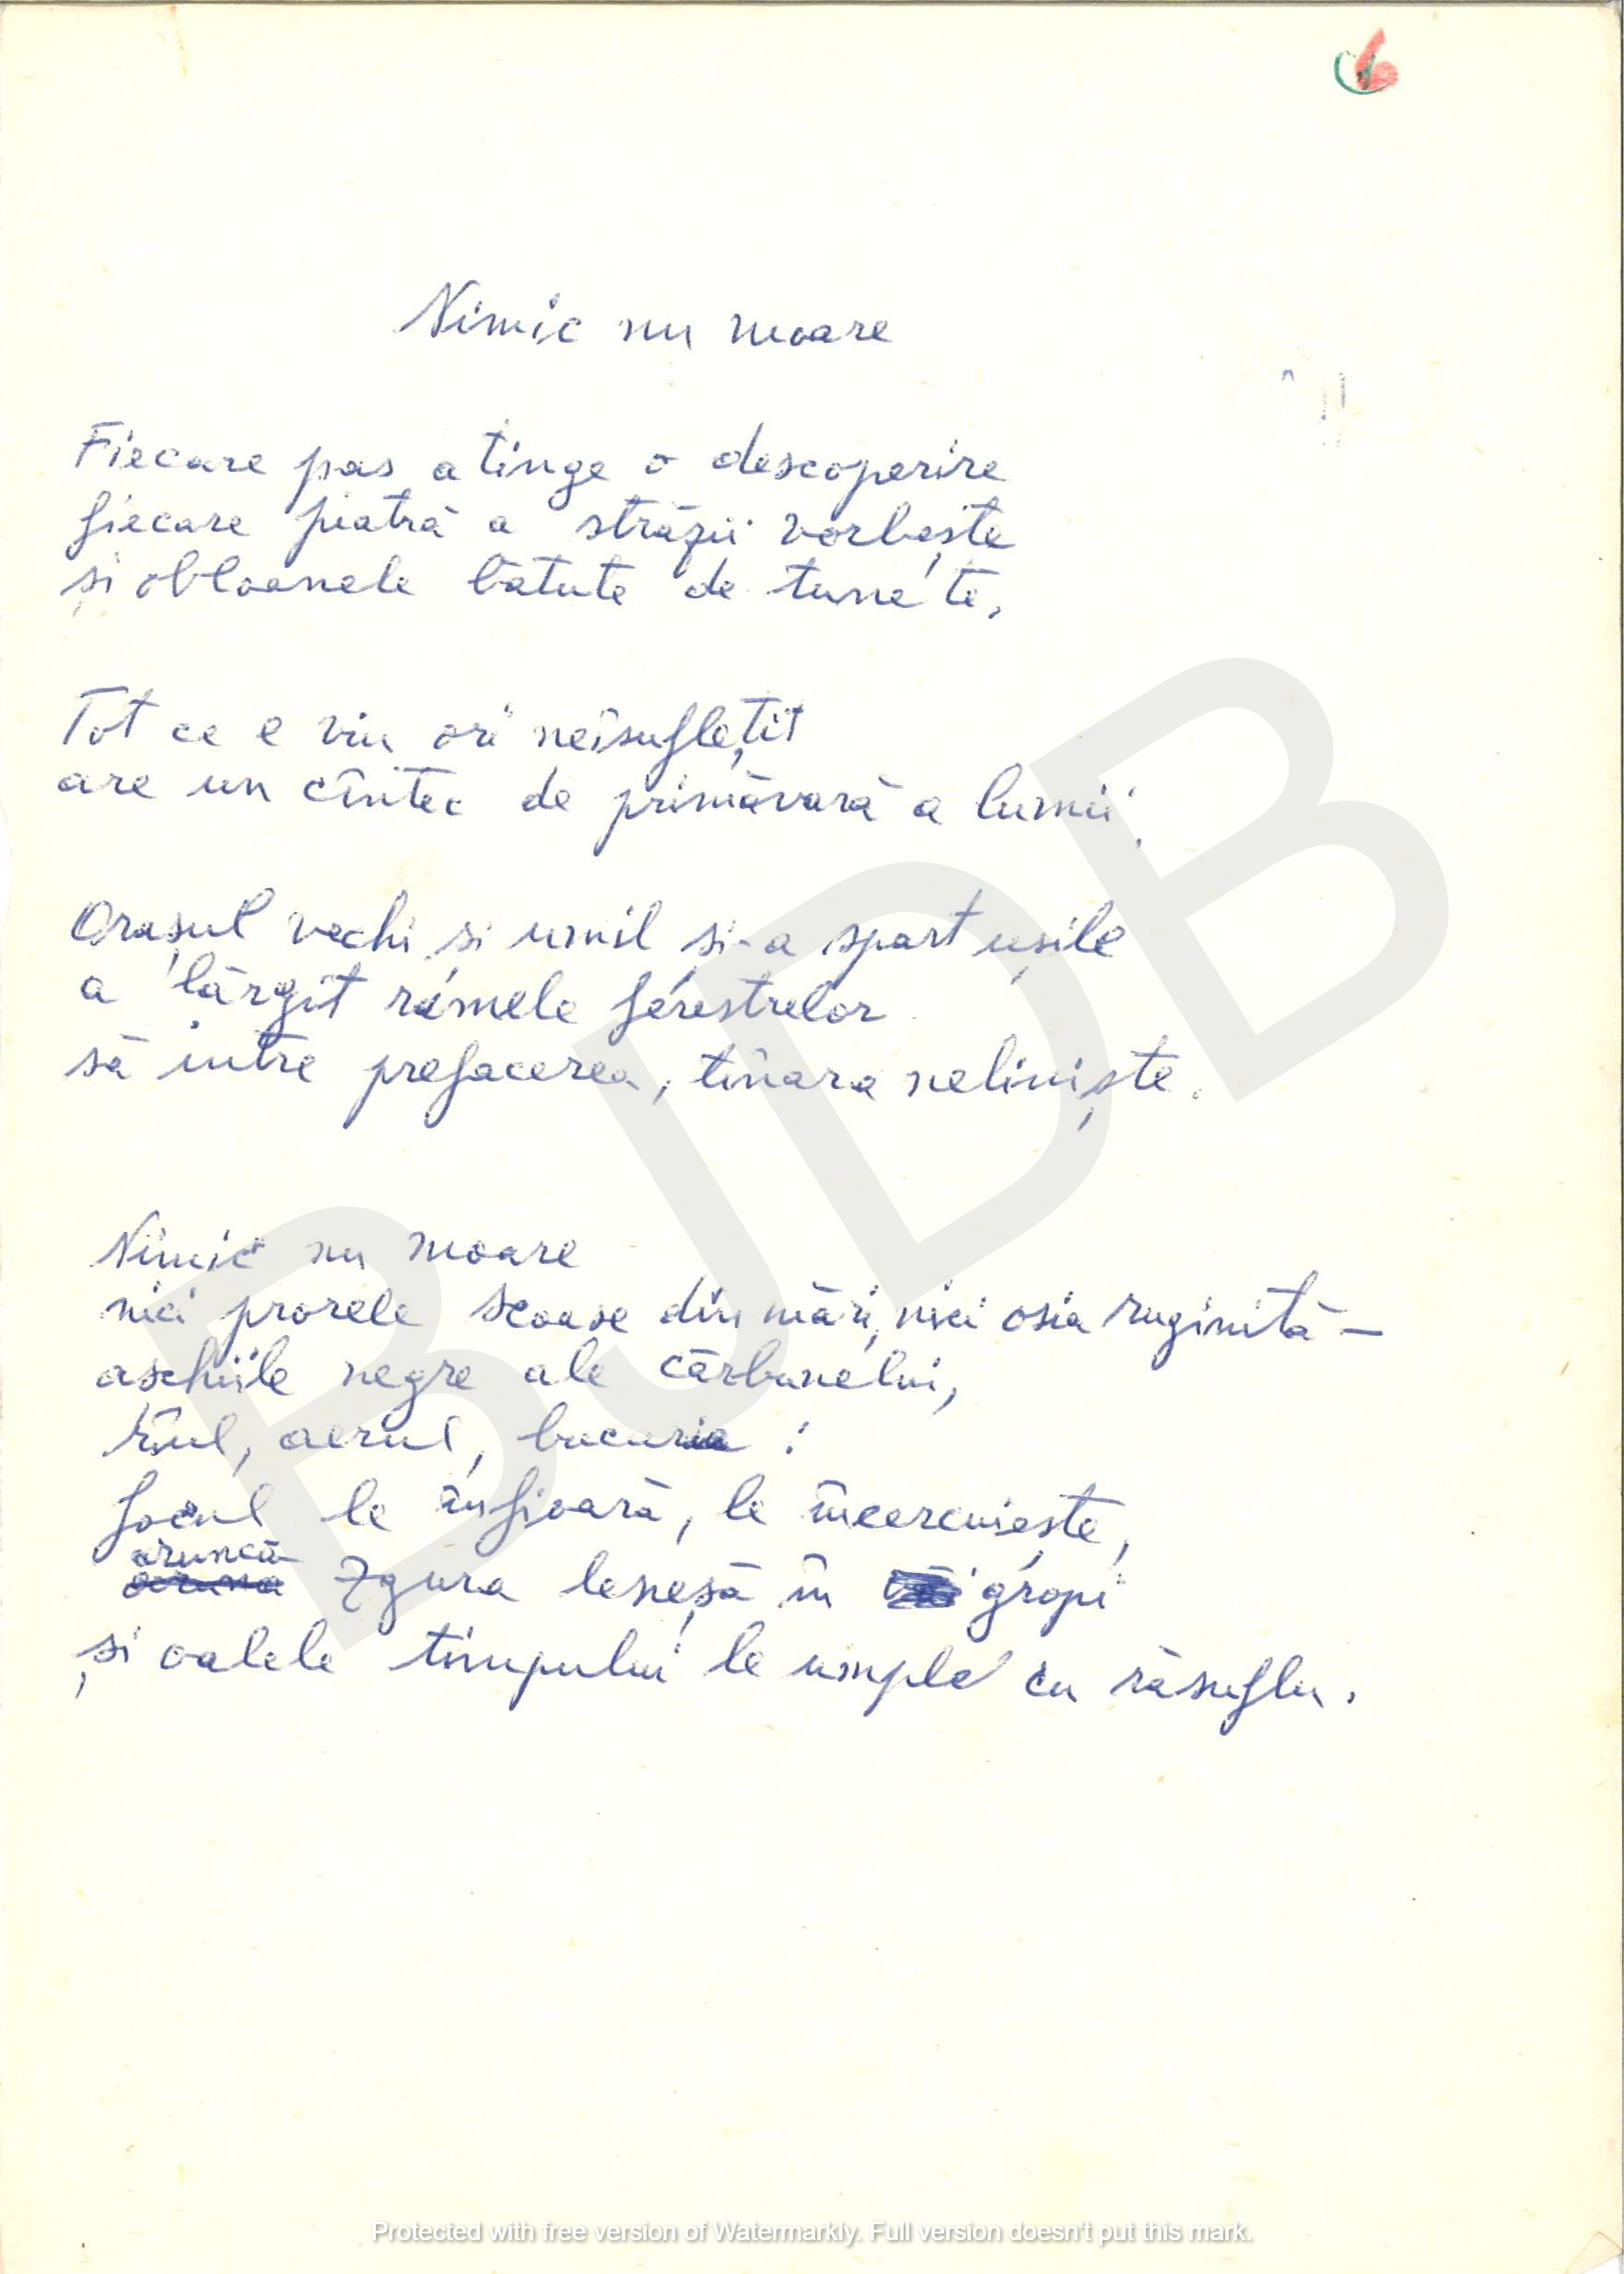 6
Nimic nu moare
Fiecare pas atinge o descoperire
fiecare piatră a străzii vorbește
și obloanele bătute de tunete.
Tot ce e viu ori neîsuflețit
are un cîntec de primăvară a lumii.
Orașul vechi și umil și-a spart ușile
a lărgit ramele ferestrelor
să intre prefacerea, tînăra neliniște.
Nimic nu moare
nici prorele scoase din mări, nici osia ruginită –
aschiile negre ale cărbunelui,
rîul, aerul, bucuria :
focul le înfioară, le încercuiește,
aruncă
zgura leneșă în gropi
și oalele timpului le umple cu răsuflu.
BJDB
Protected with free version of Watermarkly. Full version doesn't put this mark.